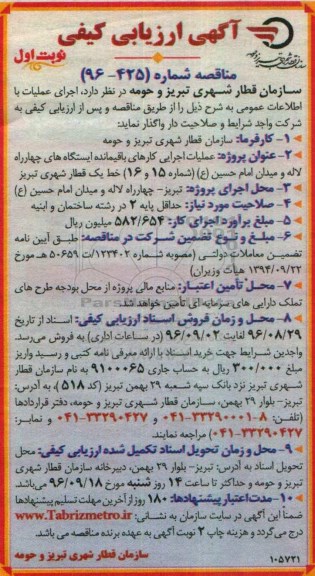 آگهی ارزیابی کیفی
نوبت اول
مناقصه شماره (۴۲۵- ۹۶)
سازمان قطار شهری تبریز و حومه در نظر دارد، اجرای عملیات با
اطلاعات عمومی به شرح ذیل را از طریق مناقصه و پس از ارزیابی کیفی به
شرکت واجد شرایط و صلاحیت دار واگذار نماید:
۱- کارفرما: سازمان قطار شهری تبریز و حومه
۲- عنوان پروژه: عملیات اجرایی کارهای باقیمانده ایستگاه های چهارراه
لاله و میدان امام حسین (ع) (شماره ۱۵ و ۱۶) خط یک قطار شهری تبریز
۳- محل اجرای پروژه: تبریز- چهارراه لاله و میدان امام حسین (ع)
۴- صلاحیت مورد نیاز: حداقل پایه ۲ در رشته ساختمان و ابنیه
۵- مبلغ برآورد اجرای کار: ۵۸۲/۶۵۴ میلیون ریال
۶- مبلغ و نوع تضمین شرکت در مناقصه: طبق آیین نامه
تضمین معاملات دولتی (مصوبه شماره ۱۲۳۴۰۲/ت ۵۰۶۵۹ هـ مورخ
۱۳۹۴/۰۹/۲۲ هیأت وزیران)
۷- محل تأمین اعتبار: منابع مالی پروژه از محل بودجه طرح های
تملک دارایی های سرمایه ای تأمین خواهد شد.
۸- محل و زمان فروش اسناد ارزیابی کیفی: اسناد از تاریخ
۹۶/۰۸/۲۹ لغایت ۹۶/۰۹/۰۲ (در ساعات اداری) به فروش می‌رسد.
واجدین شرایط جهت خرید اسناد با ارائه معرفی نامه کتبی و رسید واریز
مبلغ ۳۰۰/۰۰۰ ریال به حساب جاری ۹۱۰۰۰۶۵ به نام سازمان قطار
شهری تبریز نزد بانک سپه شعبه ۲۹ بهمن تبریز (کد ۵۱۸) به آدرس:
تبریز- بلوار ۲۹ بهمن، سازمان قطار شهری تبریز و حومه، دفتر قراردادها
(تلفن: ۸-۳۳۲۹۰۰۰۱-۰۴۱ و ۳۳۲۹۰۴۲۷-۰۴۱ و نمابر:
۳۳۲۹۰۴۲۷-۰۴۱) مراجعه نمایند.
۹- محل و زمان تحویل اسناد تکمیل شده ارزیابی کیفی: محل
تحویل اسناد به آدرس: تبریز- بلوار ۲۹ بهمن، دبیرخانه سازمان قطار شهری
تبریز و حومه و حداکثر تا ساعت ۱۴ روز شنبه مورخ ۹۶/۰۹/۱۸ می‌باشد.
۱۰- مدت اعتبار پیشنهادها: ۱۸۰ روز از آخرین مهلت تسلیم پیشنهادها
ضمناً این آگهی در سایت سازمان به نشانی: www.Tabrizmetro.ir
درج می‌گردد و هزینه چاپ ۲ نوبت آگهی به عهده برنده مناقصه می باشد
سازمان قطار شهری تبریز و حومه
۱۰۵۷۲۱